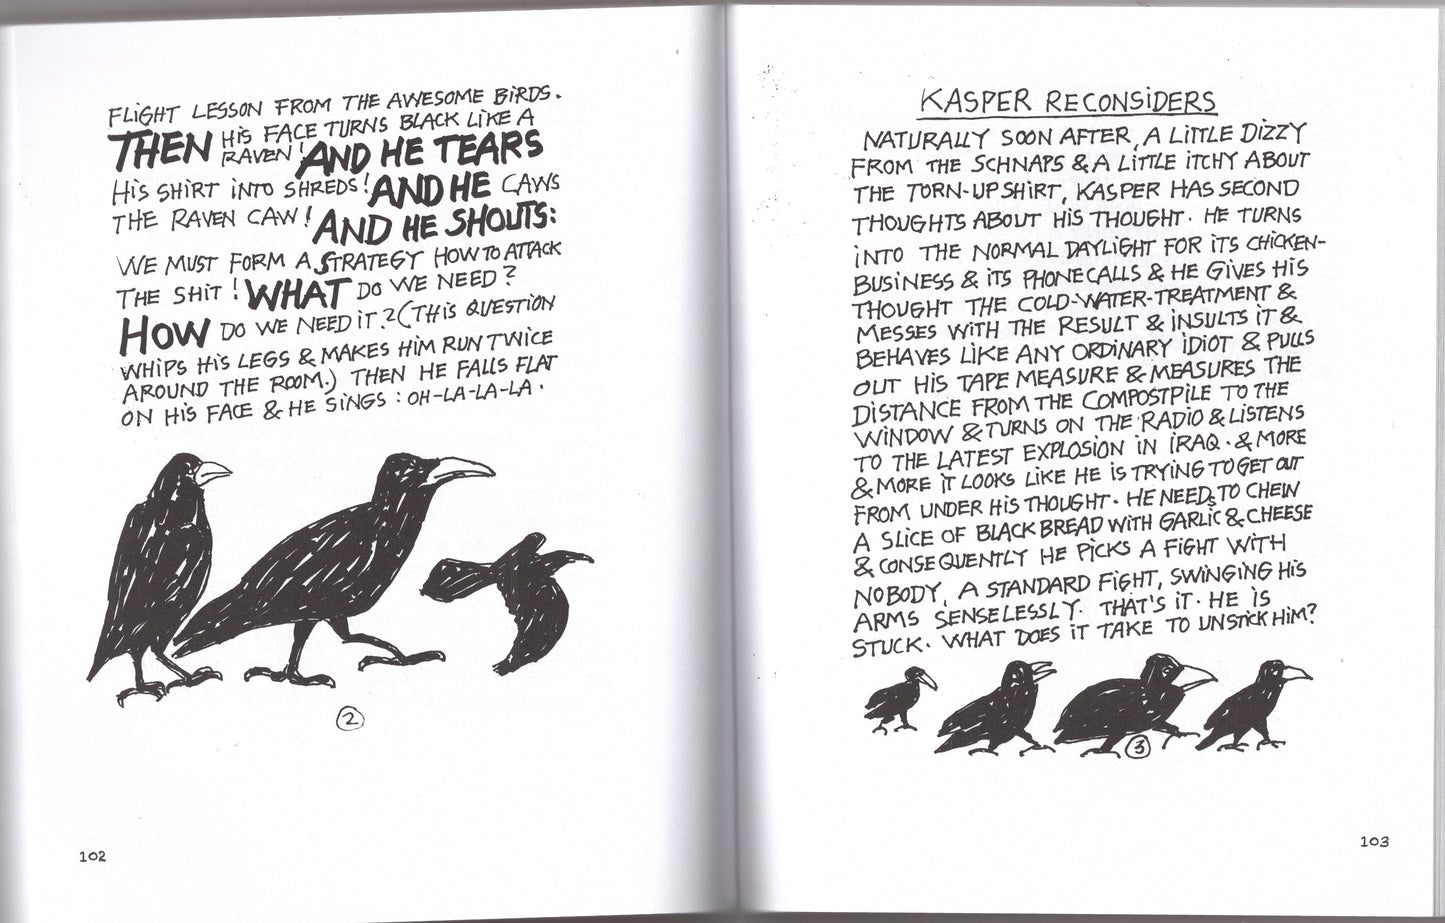 FLIGHT LESSON FROM THE AWESOME BIRDS.
THEN HIS FACE TURNS BLACK LIKE A
RAVEN! AND HE TEARS
HIS SHIRT INTO SHREDS! AND HE CAWS
THE RAVEN CAW! AND HE SHOUTS:
WE MUST FORM A STRATEGY HOW TO ATTACK
THE SHIT! WHAT DO WE NEED?
HOW DO WE NEED IT? (THIS QUESTION
WHIPS HIS LEGS & MAKES HIM RUN TWICE
AROUND THE ROOM.) THEN HE FALLS FLAT
ON HIS FACE & HE SINGS: OH-LA-LA-LA.
2
102
KASPER RECONSIDERS
NATURALLY SOON AFTER, A LITTLE DIZZY
FROM THE SCHNAPS & A LITTLE ITCHY ABOUT
THE TORN-UP SHIRT, KASPER HAS SECOND
THOUGHTS ABOUT HIS THOUGHT. HE TURNS
INTO THE NORMAL DAYLIGHT FOR ITS CHICKEN-
BUSINESS & ITS PHONECALLS & HE GIVES HIS
THOUGHT THE COLD-WATER-TREATMENT &
MESSES WITH THE RESULT & INSULTS IT &
BEHAVES LIKE ANY ORDINARY IDIOT & PULLS
OUT HIS TAPE MEASURE & MEASURES THE
DISTANCE FROM THE COMPOSTPILE TO THE
WINDOW & TURNS ON THE RADIO & LISTENS
TO THE LATEST EXPLOSION IN IRAQ. & MORE
& MORE IT LOOKS LIKE HE IS TRYING TO GET OUT
FROM UNDER HIS THOUGHT. HE NEEDS TO CHEW
A SLICE OF BLACK BREAD WITH GARLIC & CHEESE
& CONSEQUENTLY HE PICKS A FIGHT WITH
NOBODY, A STANDARD FIGHT, SWINGING HIS
ARMS SENSELESSLY. THAT'S IT. HE IS
STUCK. WHAT DOES IT TAKE TO UNSTICK HIM?
3
103